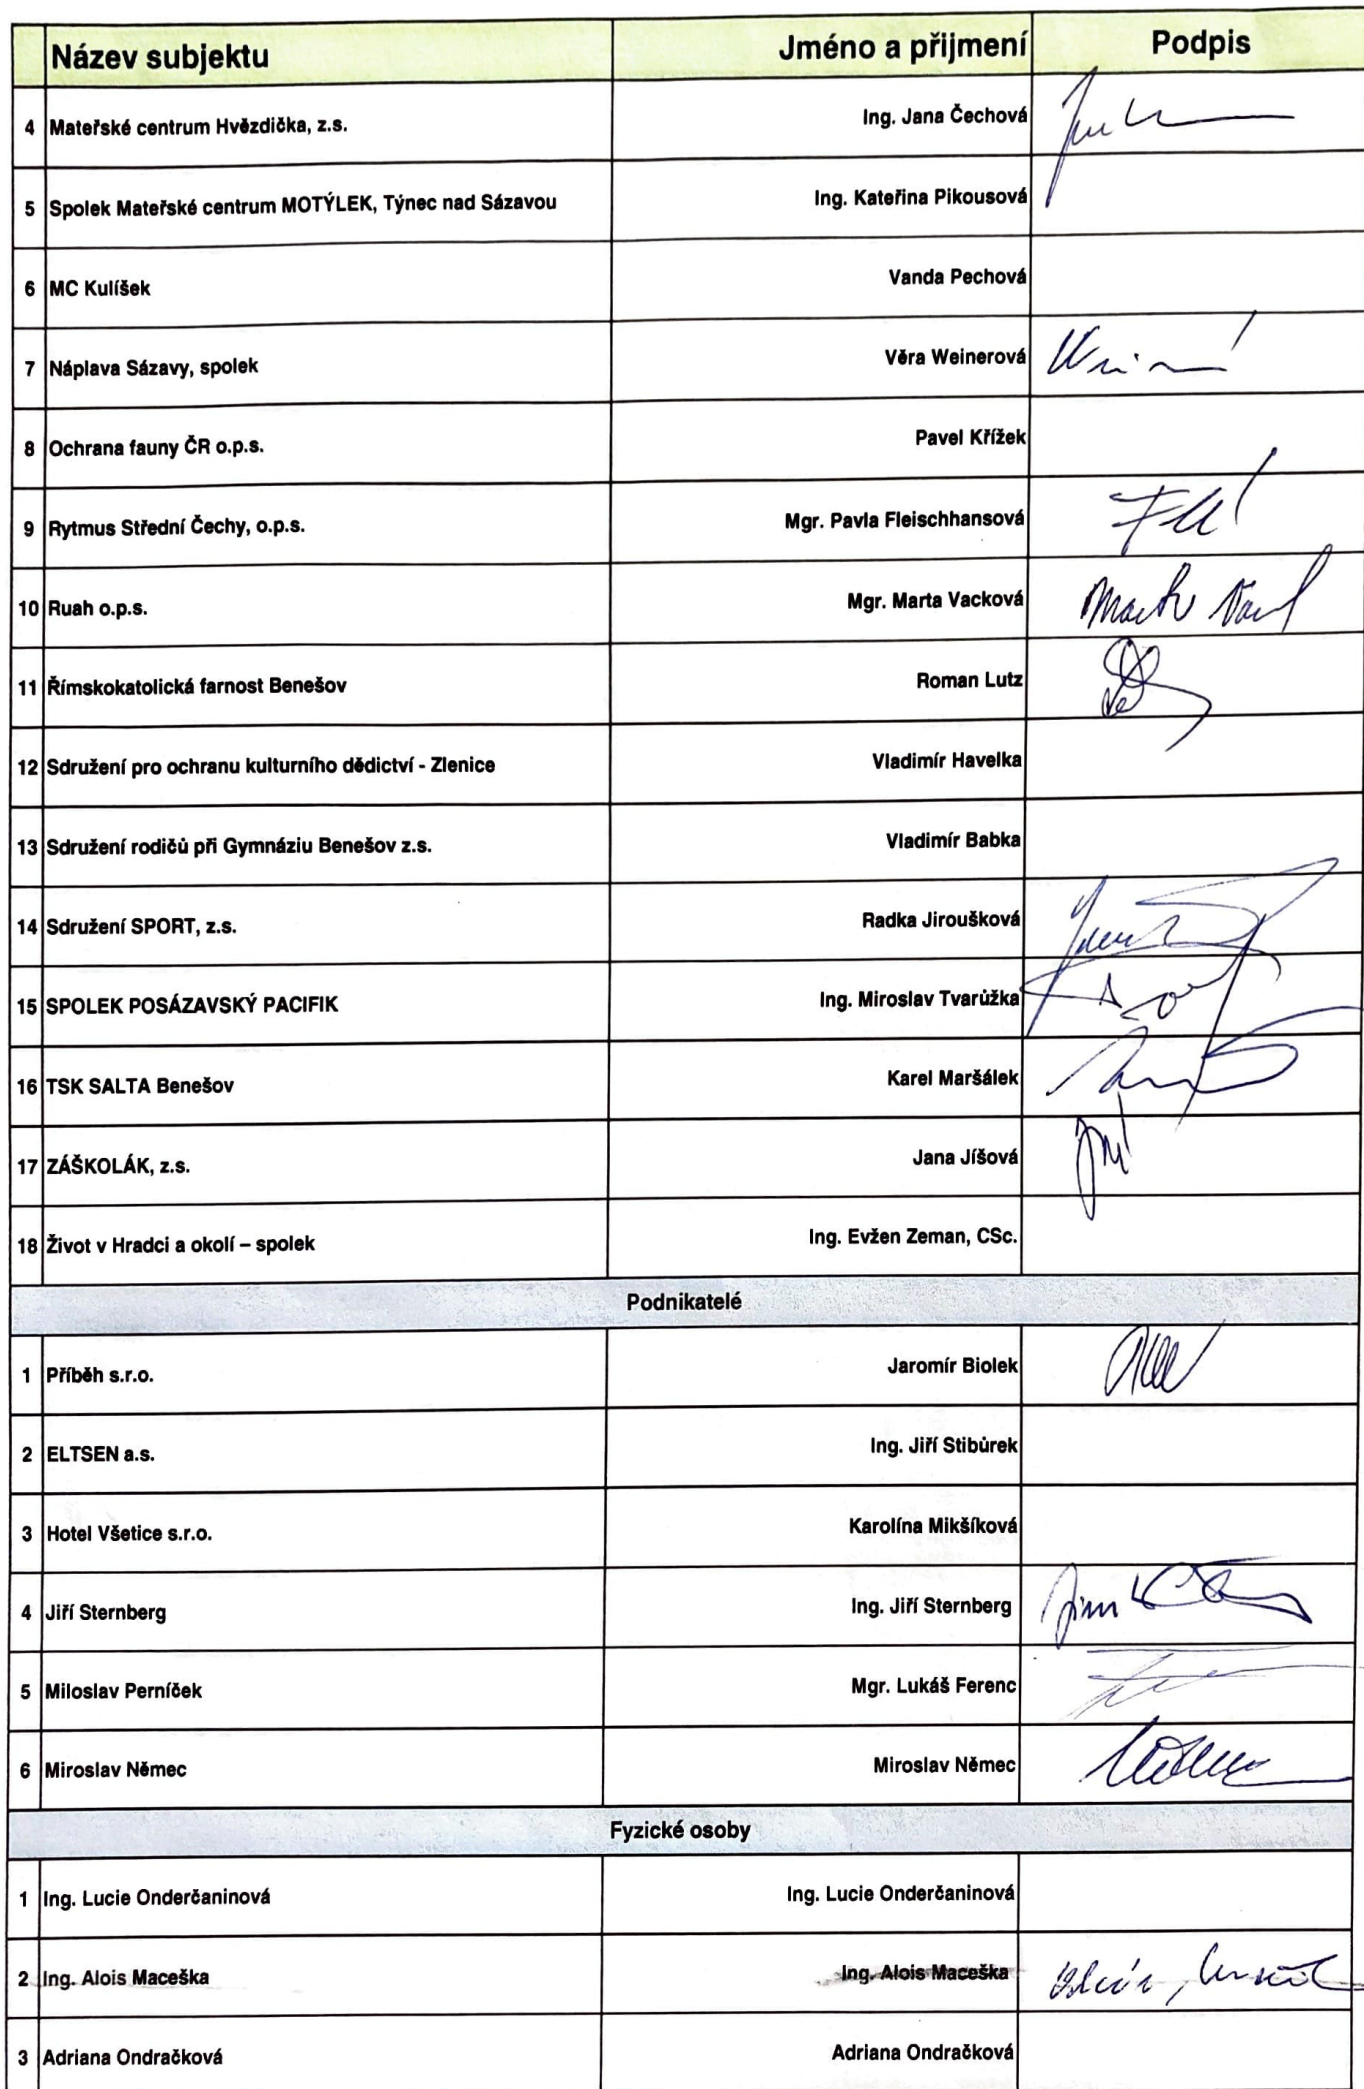 Název subjektu Jméno a přijmení Podpis
4 Mateřské centrum Hvězdička, z.s. Ing. Jana Čechová
5 Spolek Mateřské centrum MOTÝLEK, Týnec nad Sázavou Ing. Kateřina Pikousová
6 MC Kulíšek Vanda Pechová
7 Náplava Sázavy, spolek Věra Weinerová
8 Ochrana fauny ČR o.p.s. Pavel Křížek
9 Rytmus Střední Čechy, o.p.s. Mgr. Pavla Fleischhansová
10 Ruah o.p.s. Mgr. Marta Vacková
11 Římskokatolická farnost Benešov Roman Lutz
12 Sdružení pro ochranu kulturního dědictví - Zlenice Vladimír Havelka
13 Sdružení rodičů při Gymnáziu Benešov z.s. Vladimír Babka
14 Sdružení SPORT, z.s. Radka Jiroušková
15 SPOLEK POSÁZAVSKÝ PACIFIK Ing. Miroslav Tvarůžka
16 TSK SALTA Benešov Karel Maršálek
17 ZÁŠKOLÁK, z.s. Jana Jíšová
18 Život v Hradci a okolí – spolek Ing. Evžen Zeman, CSc.
Podnikatelé
1 Příběh s.r.o. Jaromír Biolek
2 ELTSEN a.s. Ing. Jiří Stibůrek
3 Hotel Všetice s.r.o. Karolína Mikšíková
4 Jiří Sternberg Ing. Jiří Sternberg
5 Miloslav Perníček Mgr. Lukáš Ferenc
6 Miroslav Němec Miroslav Němec
Fyzické osoby
1 Ing. Lucie Onderčaninová Ing. Lucie Onderčaninová
2 Ing. Alois Maceška Ing. Alois Maceška
3 Adriana Ondračková Adriana Ondračková